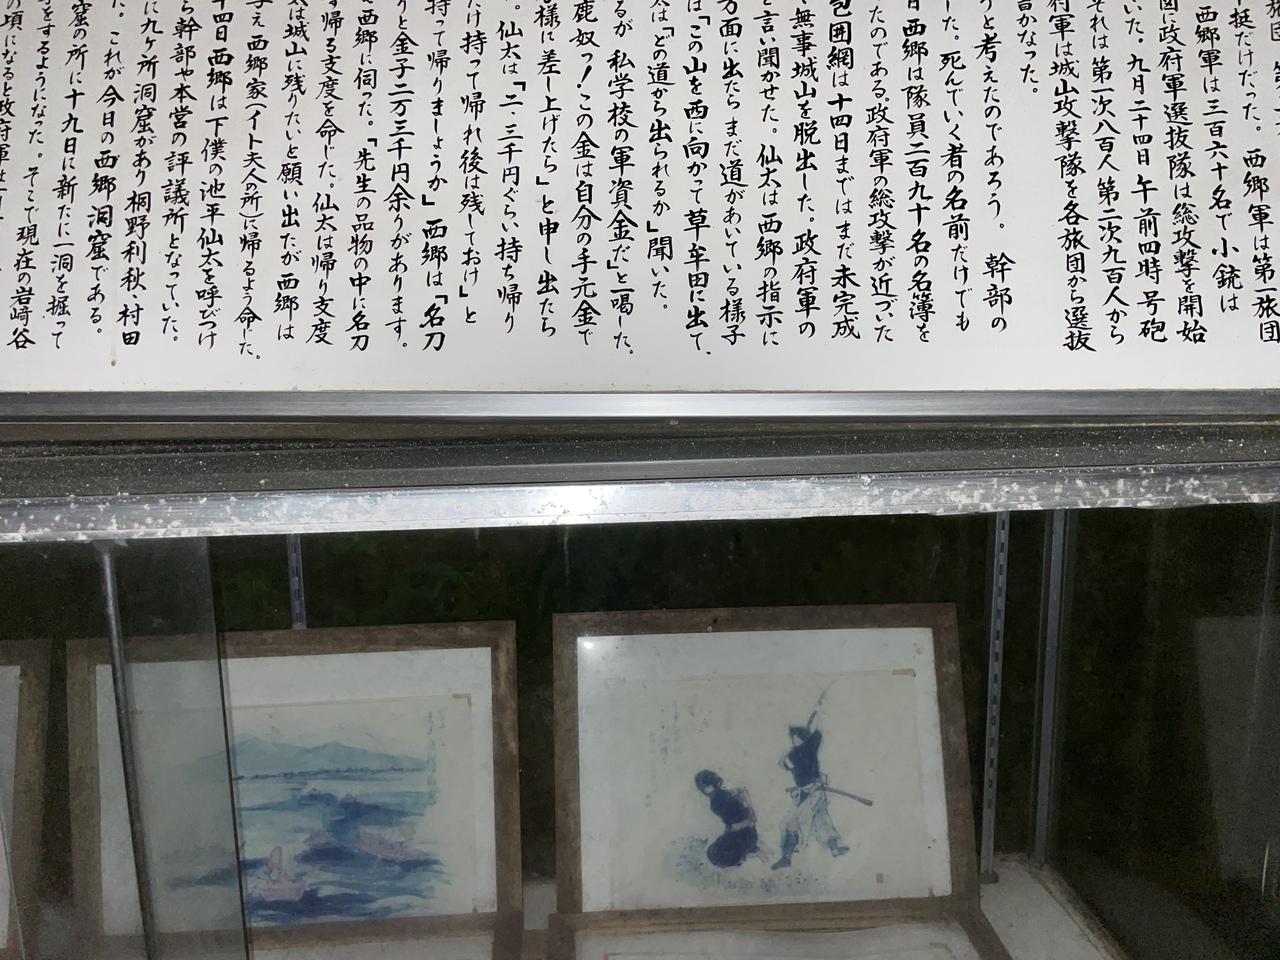 西郷軍は第一旅団
西郷軍は三百六十名で小銃は
挺だけだった。
に政府軍選抜隊は総攻撃を開始
いた。九月二十四日午前四時号砲
それは第一次八百人第二次九百人から
府軍は城山攻撃隊を各旅団から選抜
かなった。
うと考えたのであろう。幹部の
した。死んでいく者の名前だけでも
日西郷は隊員二百九十名の名簿を
たのである。政府軍の総攻撃が近づいた
包囲網は十四日まではまだ未完成
無事城山を脱出した。政府軍の
と言い聞かせた。仙太は西郷の指示に
方面に出たらまだ道があいている様子
は「この山を西に向かって草牟田に出て、
太は「どの道から出られるか」聞いた。
るが私学校の軍資金だ」と一喝した。
鹿奴っ!この金は自分の手元金で
様に差し上げたら」と申し出たら
。仙太は「二、三千円ぐらい持ち帰り
だけ持って帰れ後は残しておけ」と
持って帰りましょうか」西郷は「名刀
りと金子二万三千円余りがあります。
西郷に伺った。「先生の品物の中に名刀
帰る支度を命じた。仙太は帰り支度
は城山に残りたいと願い出たが西郷は
え西郷家(イト夫人の所)に帰るよう命じた。
十四日西郷は下僕の池平仙太を呼びつけ
ら幹部や本営の評議所となっていた。
に九ヶ所洞窟があり桐野利秋、村田
た。これが今日の西郷洞窟である。
窟の所に十九日に新たに一洞を掘って
をするようになった。そこで現在の岩崎谷
の頃になると政府軍は